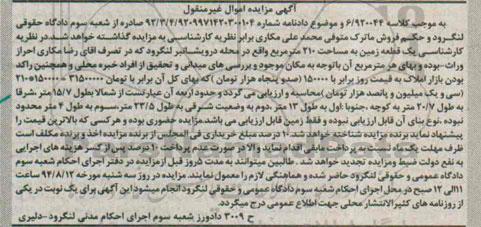 آگهی مزایده اموال غیرمنقول
به موجب کلاسه ۶/۹۲۰۰۴۴ و موضوع دادنامه شماره ۹۲/۳/۴/۹۲۰۹۹۷۱۴۲۰۳۰۰۱۰۴ صادره از شعبه سوم دادگاه حقوقی
لنگرود و حکیم فروش ماترک متوفی محمد علی مکاری برابر نظریه کارشناسی به مزایده گذاشته خواهد شد.در نظریه
کارشناسی یک قطعه زمین به مساحت ۲۱۰ مترمربع واقع در محله درویشانبر لنگرود که در تصرف اقای رضا مکاری احراز
وراث بوده و بهای هر مترمربع آن باتوجه به مکان موجود و بررسی های میدانی و تحقیق از افراد خبره محلی و همچنین راکد
بودن بازار املاک به قیمت روز برابر با ۱۵۰۰۰۰ (صدو پنجاه هزار تومان) که بهای کل آن برابر با تومان ۳۱۵۰۰۰۰۰ = ۲۱۰×۱۵۰۰۰۰
(سی و یک میلیون و پانصد هزار تومان )محاسبه و ارزیابی می گردد و حدود اربعه آن عبارتست از شمالا بطول ۱۵/۷ متر ،شرقا
به طول ۲۰/۷ متر به کوچه ،جنوبا :اول به طول ۱۳ متر ،دوم به وضعیت شرقی به طول ۲۳/۵ متر،سوم به طول ۴ متر محدود
نبوده .نوع بنای آن قابل ارزیابی نبوده و فقط زمین قابل ارزیابی می باشد.مزایده حضوری بوده و هرکسی که بالاترین قیمت را
پیشنهاد نماید برنده مزایده شناخته خواهد شد.۱۰ درصد مبلغ خریداری فی المجلس از برنده مزایده اخذ و برنده مکلف است
ظرف مهلت یک ماه نسبت به پرداخت مابقی اقدام نماید و الا در صورت عدم پرداخت ۱۰ درصد پس از کسر هزینه های اجرایی
به نفع دولت ضبط ومزایده تجدید خواهد شد. طالبین میتوانند به مدت ۵روز قبل ازمزایده در دفتر اجرای احکام شعبه سوم
دادگاه عمومی و حقوقی لنگرود حاضر شده و هماهنگی لازم را معمول نمایند. مزایده در روز سه شنبه مورخه ۹۴/۸/۱۲ ساعت
۱۱الی ۱۲ صبح در محل اجرای احکام شعبه سوم دادگاه عمومی و حقوقی لنگرود انجام میشود.این آگهی برای یک نوبت در یکی
از روزنامه های کثیرالانتشار محلی جهت اطلاع عمومی درج میگردد.
ح ۳۰۰۹ دادورز شعبه سوم اجرای احکام مدنی لنگرود-دلیری